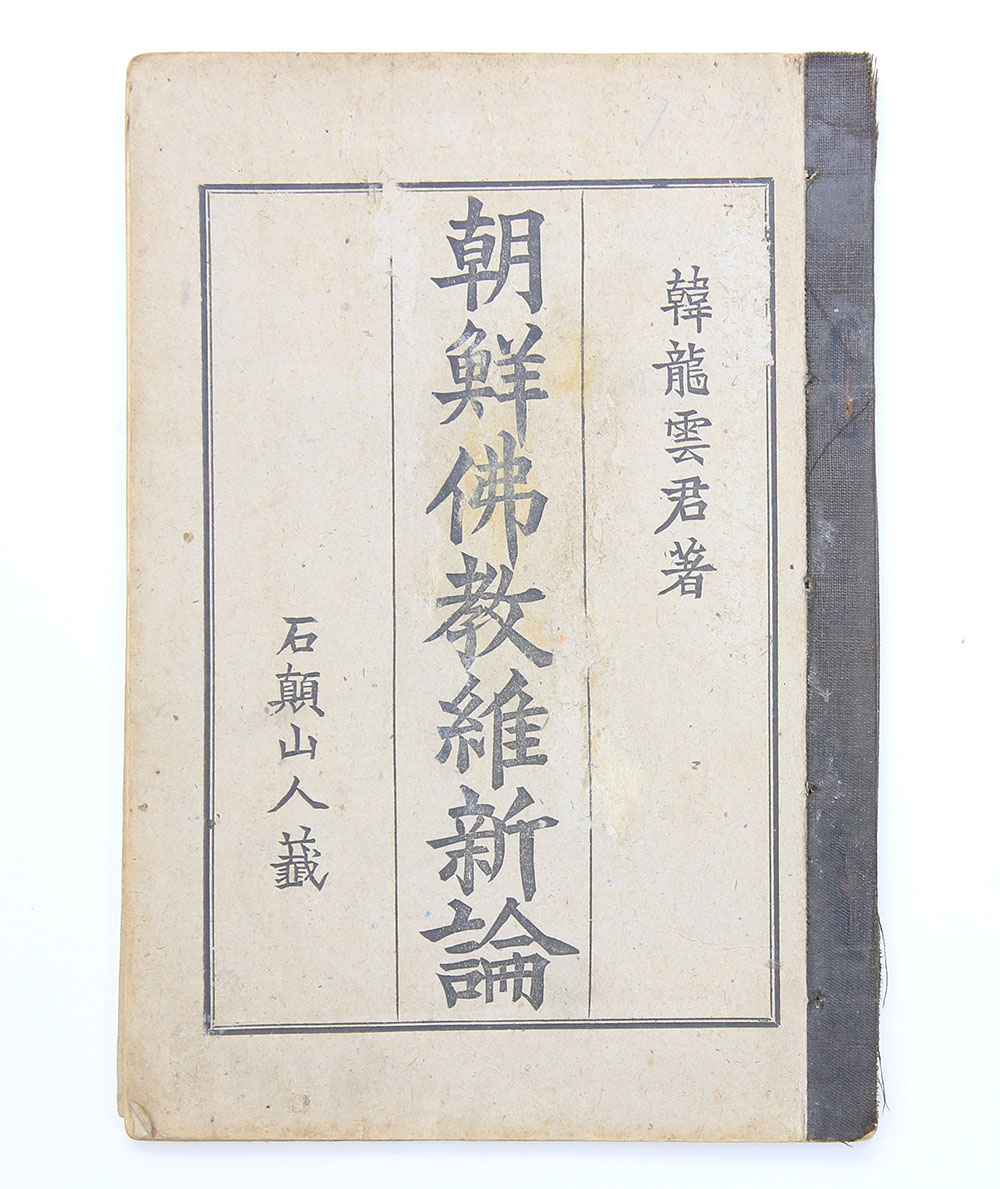 韓龍雲君著
朝鮮佛教維新論
石顛山人韱